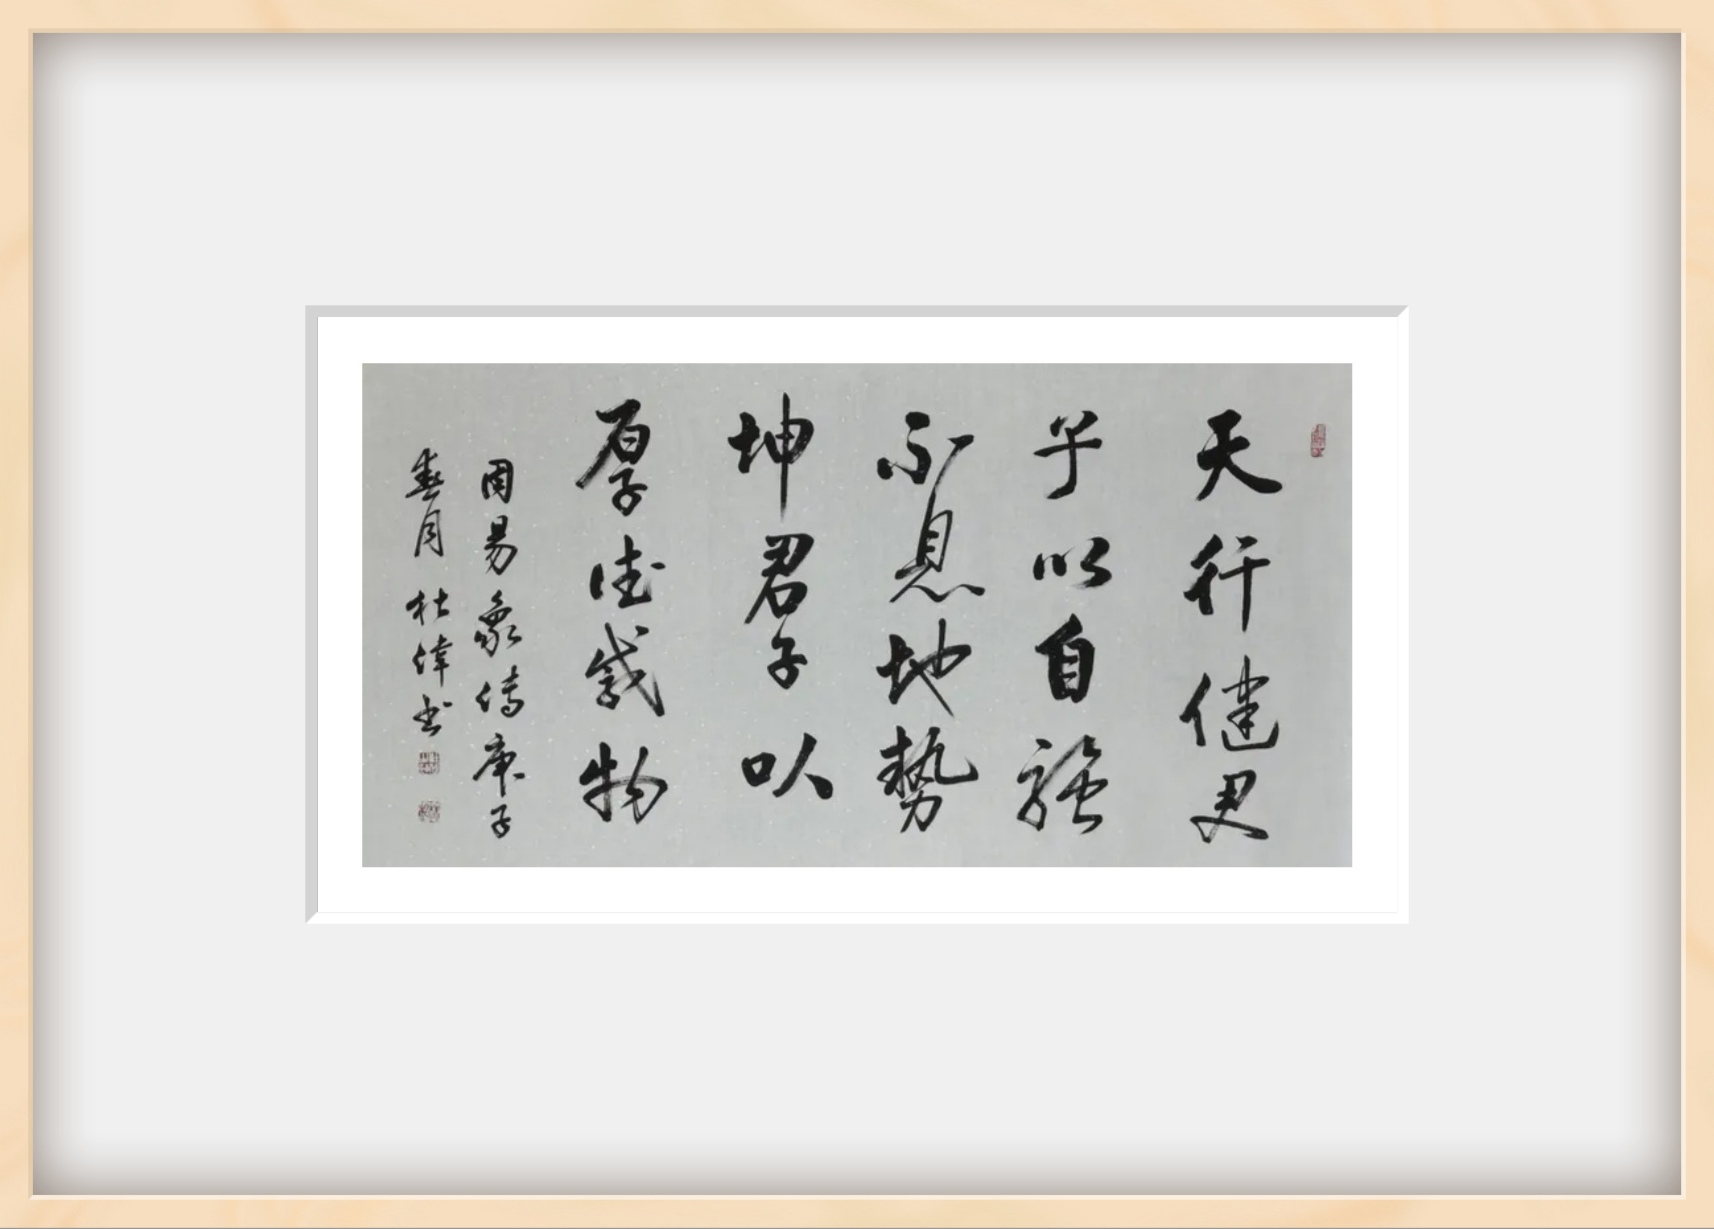 天行健君
子以自強
不息地勢
坤君子以
厚德載物
周易象傳庚子
春月杜偉書